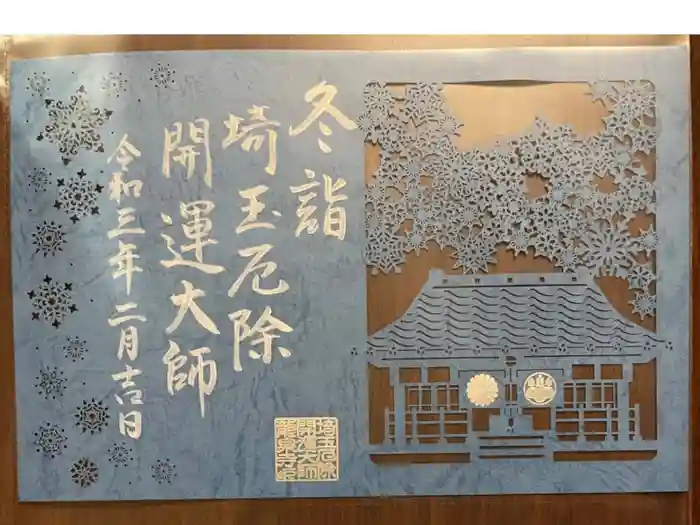 冬詣
埼玉厄除
開運大師
令和三年二月吉日
埼玉厄除
開運大師